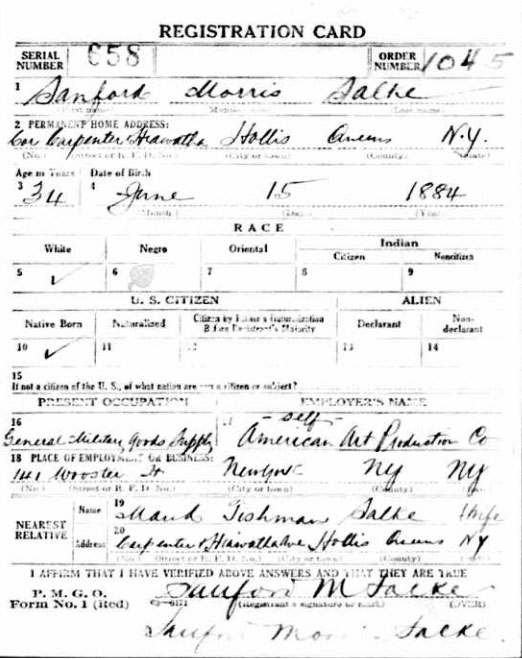 REGISTRATION CARD
SERIAL NUMBER 658 ORDER NUMBER 1045
1 Sanford Morris Falke
2 PERMANENT HOME ADDRESS:
Cor Carpenter & Hiawatha Hollis Queens N.Y.
(No.) (Street or R. F. D. No.) (City or town) (County) (State)
Age in Years Date of Birth
3 34 4 June 15 1884
(Month) (Day) (Year)
RACE
White Negro Oriental Indian
Citizen Noncitizen
5 ✓ 6 7 8 9
U. S. CITIZEN ALIEN
Native Born Naturalized Citizen by Father's Naturalization Before Registrant's Majority Declarant Non-declarant
10 ✓ 11 12 13 14
15
If not a citizen of the U. S., of what nation are you a citizen or subject?
PRESENT OCCUPATION EMPLOYER'S NAME
16 17 - self -
General Military Goods Supply American Art Production Co
18 PLACE OF EMPLOYMENT OR BUSINESS:
141 Wooster St New York NY NY
(No.) (Street or R. F. D. No.) (City or town) (County)
NEAREST RELATIVE
Name 19 Maud Fishman Falke Wife
Address 20 Carpenter & Hiawatha Ave Hollis Queens NY
(No.) (Street or R. F. D. No.) (City or town) (County)
I AFFIRM THAT I HAVE VERIFIED ABOVE ANSWERS AND THAT THEY ARE TRUE
P. M. G. O.
Form No. 1 (Red) Sanford M Falke
(Registrant's signature or mark) (OVER)
Sanford Falke.